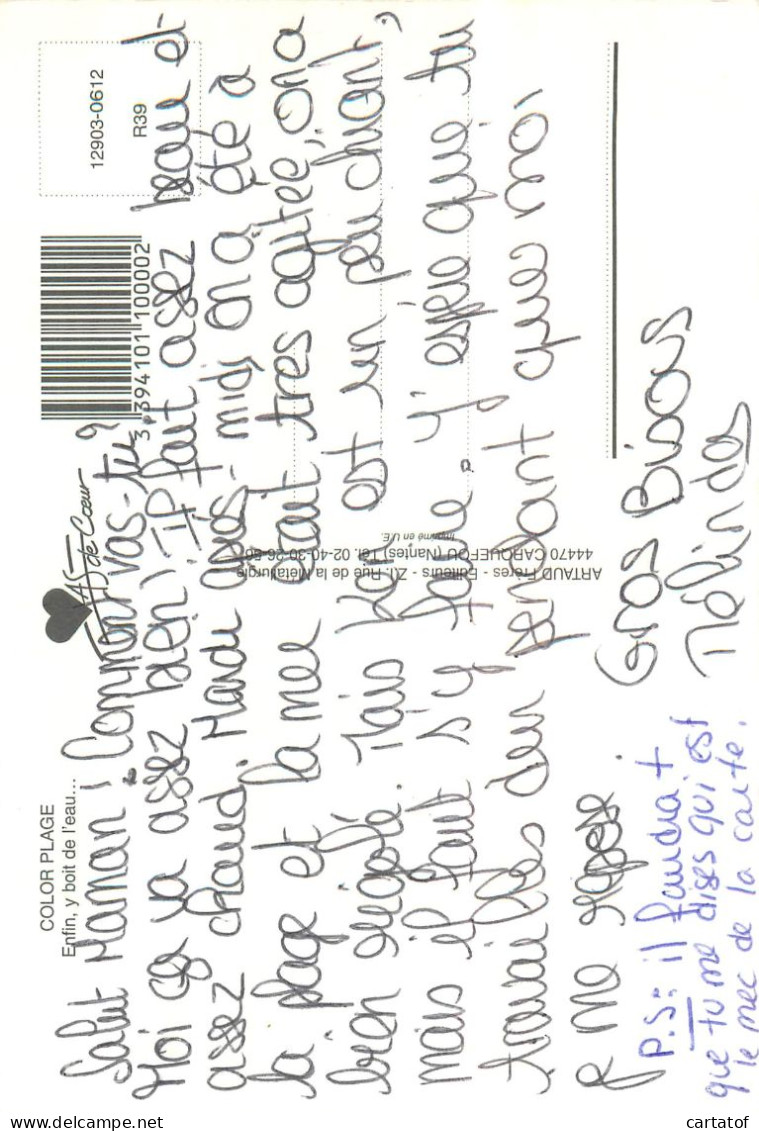 COLOR PLAGE
Enfin, y boit de l'eau...
AS de Coeur
3 394101 100002
12903-0612
R39
Salut Maman ! Comment vas-tu ?
Moi ça va assez bien, il fait assez beau et
assez chaud. Mardi après-midi on a été à
la plage et la mer était très agitée, on a
bien rigolé. Mais Ker est un peu chiant,
mais il faut s'y faire. J'espère que tu
travailles dur pensant que moi,
je me repose.
Gros Bisous
Mélinda
P.S: il faudra +
que tu me dises qui est
le mec de la carte.
ARTAUD Frères - Editeurs - Z.I. Rue de la Métallurgie
44470 CARQUEFOU (Nantes) Tél. 02-40-30-26-
Imprimé en U.E.
cartatof